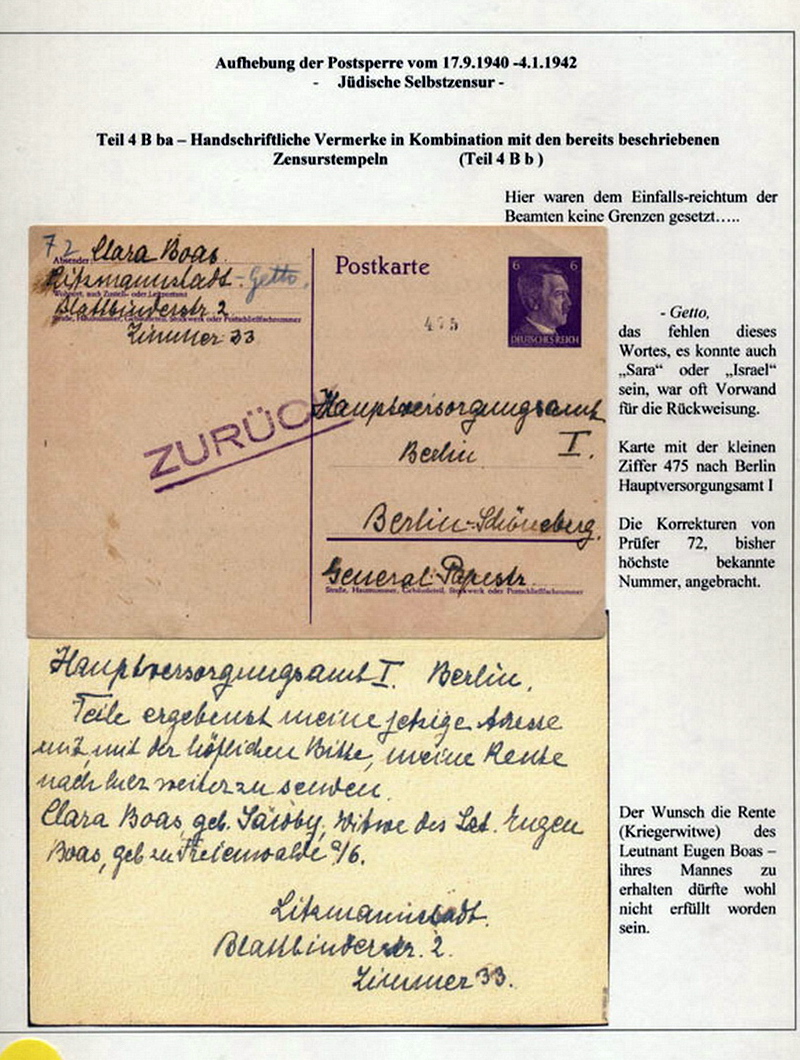 Aufhebung der Postsperre vom 17.9.1940 -4.1.1942
- Jüdische Selbstzensur -
Teil 4 B ba – Handschriftliche Vermerke in Kombination mit den bereits beschriebenen
Zensurstempeln (Teil 4 B b )
Hier waren dem Einfalls-reichtum der
Beamten keine Grenzen gesetzt…..
72
Absender: Clara Boas.
Litzmannstadt-Getto.
Wohnort, auch Zustell- oder Leitpostamt
Blattbinderstr. 2
Straße, Hausnummer, Gebäudeteil, Stockwerk oder Postschließfachnummer
Zimmer 33
Postkarte
6 6
DEUTSCHES REICH
475
ZURÜCK
Hauptversorgungsamt
Berlin I.
Berlin-Schöneberg.
General-Papestr.
Straße, Hausnummer, Gebäudeteil, Stockwerk oder Postschließfachnummer
- Getto,
das fehlen dieses
Wortes, es konnte auch
„Sara“ oder „Israel“
sein, war oft Vorwand
für die Rückweisung.
Karte mit der kleinen
Ziffer 475 nach Berlin
Hauptversorgungsamt I
Die Korrekturen von
Prüfer 72, bisher
höchste bekannte
Nummer, angebracht.
Hauptversorgungsamt I. Berlin.
Teile ergebenst meine jetzige Adresse
mit, mit der höflichen Bitte, meine Rente
nach hier weiter zu senden.
Clara Boas, geb. Jacoby, Witwe des Lt. Eugen
Boas, geb zu Freienwalde a/O.
Litzmannstadt.
Blattbinderstr. 2.
Zimmer 33.
Der Wunsch die Rente
(Kriegerwitwe) des
Leutnant Eugen Boas –
ihres Mannes zu
erhalten dürfte wohl
nicht erfüllt worden
sein.